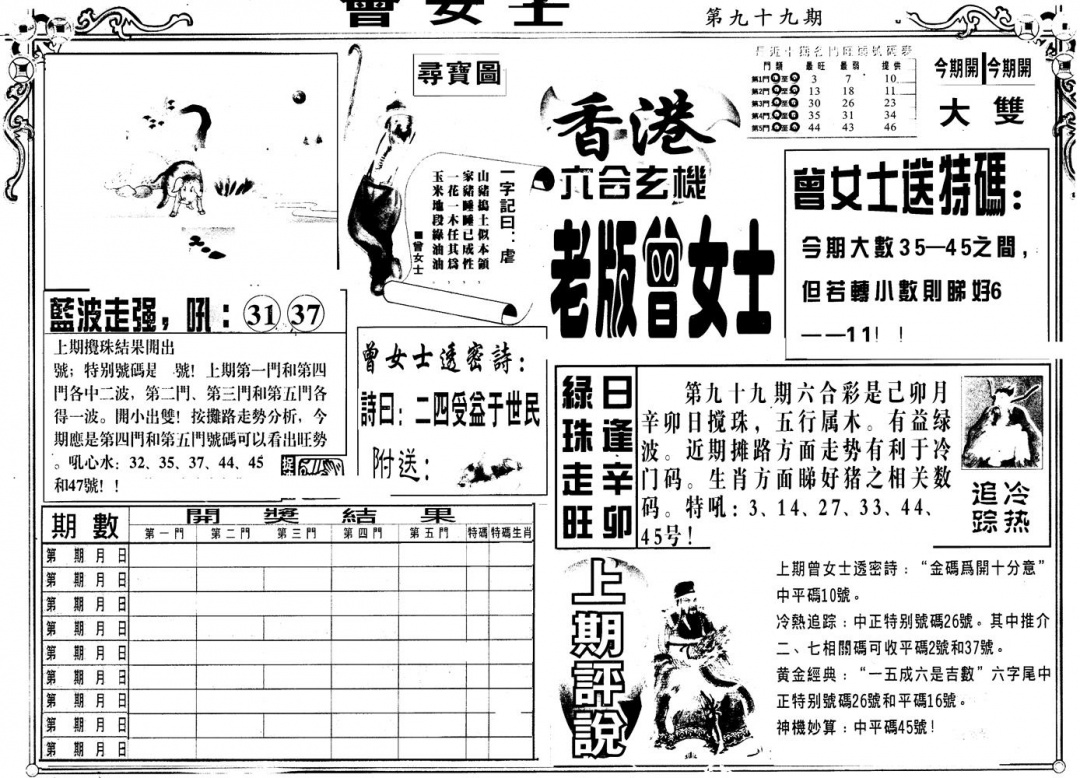 曾女士
第九十九期
尋寶圖
一字記曰：虐
山豬搗土似本領，
家豬睡睡已成性，
一花一木任其爲，
玉米地段綠油油
■曾女士
香港
六合玄機
老版曾女士
門類 最旺 最弱 提供
第1門 至 3 7 10
第2門 至 13 18 11
第3門 至 30 26 23
第4門 至 35 31 34
第5門 至 44 43 46
今期開 今期開
大 雙
曾女士送特碼：
今期大數35—45之間，
但若轉小數則睇好6
——11！！
藍波走强，吼：31 37
上期攪珠結果開出
號；特别號碼是 號！上期第一門和第四
門各中二波，第二門、第三門和第五門各
得一波。開小出雙！按攤路走勢分析，今
期應是第四門和第五門號碼可以看出旺勢
。吼心水：32、35、37、44、45
和47號！！
曾女士透密詩：
詩曰：二四受益于世民
附送：
綠珠走旺
日逢辛卯
第九十九期六合彩是己卯月
辛卯日搅珠，五行属木。有益绿
波。近期摊路方面走势有利于冷
门码。生肖方面睇好猪之相关数
码。特吼：3、14、27、33、44、
45号！
冷热
追踪
期數 開獎結果
第一門 第二門 第三門 第四門 第五門 特碼 特碼生肖
第 期 月 日
第 期 月 日
第 期 月 日
第 期 月 日
第 期 月 日
第 期 月 日
第 期 月 日
第 期 月 日
第 期 月 日
上期評說
上期曾女士透密詩：“金碼爲開十分意”
中平碼10號。
冷熱追踪：中正特别號碼26號。其中推介
二、七相關碼可收平碼2號和37號。
黄金經典：“一五成六是吉數”六字尾中
正特别號碼26號和平碼16號。
神機妙算：中平碼45號！